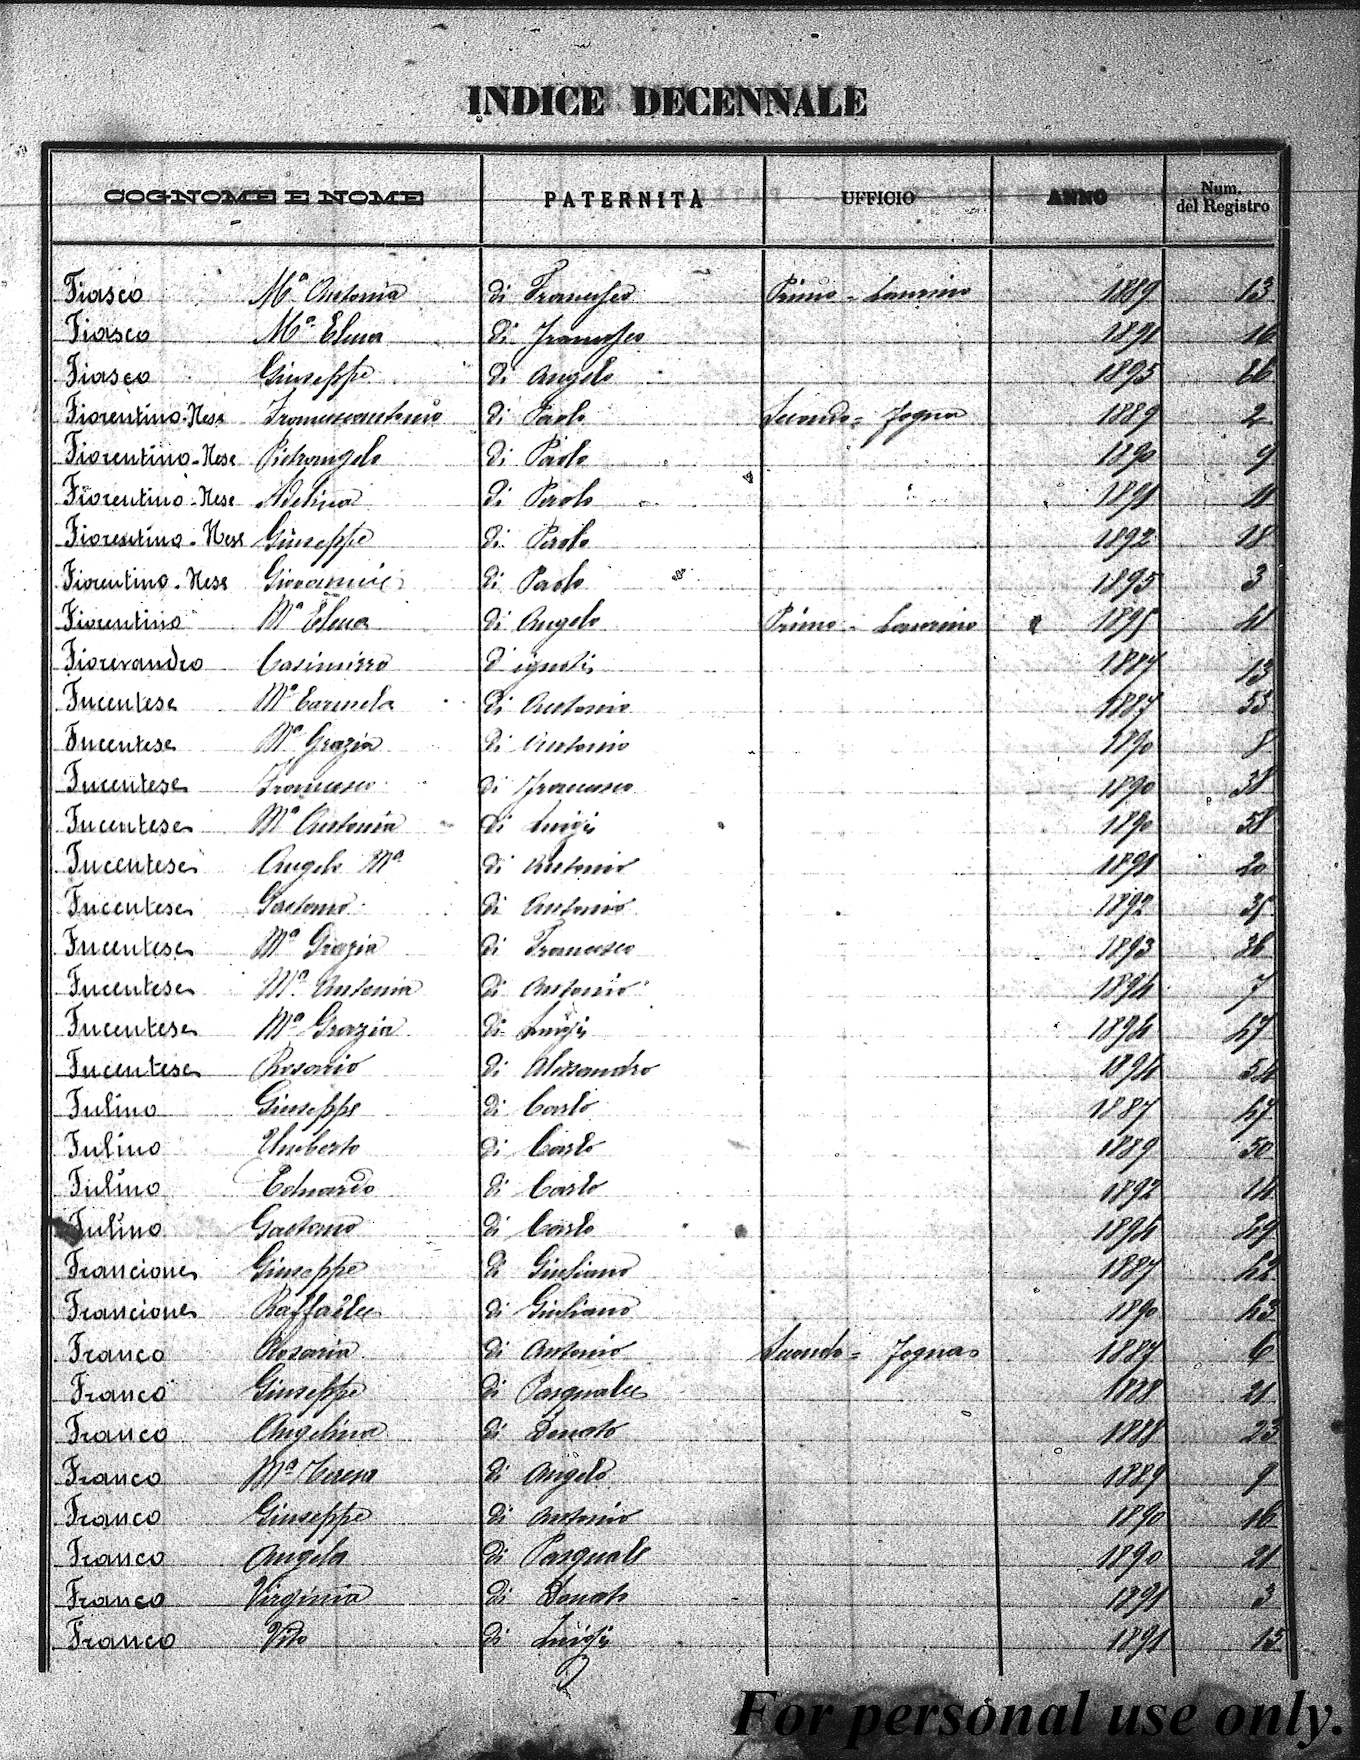 INDICE DECENNALE
COGNOME E NOME PATERNITÀ UFFICIO ANNO Num. del Registro
Fiasco Mª Antonia di Francesco Primo - Laurino 1889 13
Fiasco Mª Elena di Francesco 1891 16
Fiasco Giuseppe di Angelo 1895
Fiorentino-Nese Francescantonio di Paolo Secondo - Fogna 1889 2
Fiorentino-Nese Pietrangelo di Paolo 1890 9
Fiorentino-Nese Adelina di Paolo 1891 11
Fiorentino-Nese Giuseppe di Paolo 1892 18
Fiorentino-Nese Giovannie di Paolo 1895 3
Fiorentino Mª Elena di Angelo Primo - Laurino 1895 41
Fiorerandro Casimirro d'ignoti 1887 13
Fucentese Mª Carmela di Antonio 1887 53
Fucentese Mª Grazia di Antonio 1890 8
Fucentese Francesco di Francesco 1890 38
Fucentese Mª Antonia di Luigi 1890 58
Fucentese Angelo Mª di Antonio 1891 20
Fucentese Gaetano di Antonio 1892 35
Fucentese Mª Grazia di Francesco 1893 36
Fucentese Mª Antonia di Antonio 1894 7
Fucentese Mª Grazia di Luigi 1894 47
Fucentese Rosario di Alessandro 1894 54
Fulino Giuseppe di Carlo 1887 47
Fulino Umberto di Carlo 1889 50
Fulino Eduardo di Carlo 1892 14
Fulino Gaetano di Carlo 1894 29
Francione Giuseppe di Giuliano 1887 42
Francione Raffaele di Giuliano 1890 43
Franco Rosaria di Antonio Secondo - Fogna 1887 6
Franco Giuseppe di Pasquale 1888 21
Franco Angelina di Donato 1888 23
Franco Mª Teresa di Angelo 1889 9
Franco Giuseppe di Antonio 1890 16
Franco Angela di Pasquale 1890 21
Franco Virginia di Donato 1891 3
Franco Vito di Luigi 1891 15
For personal use only.